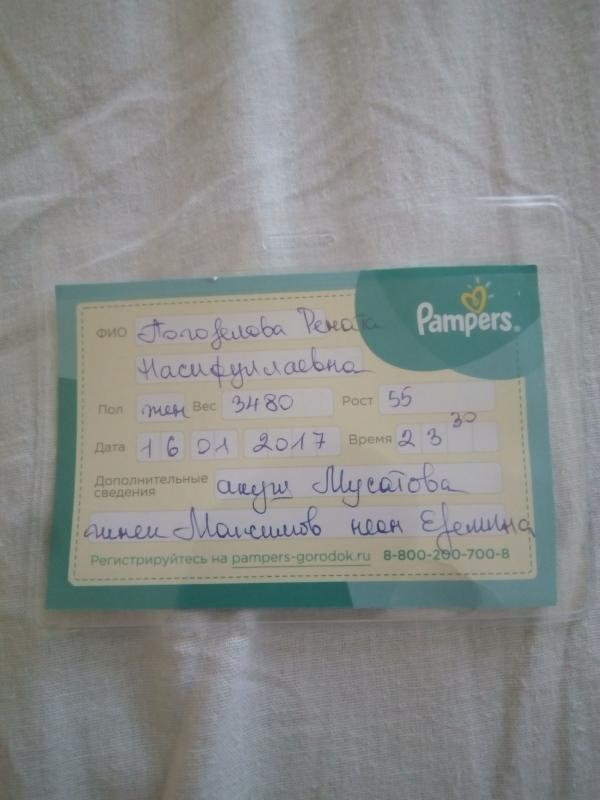 Pampers®
ФИО Погорелова Рената
Насифуллаевна
Пол жен Вес 3480 Рост 55
Дата 16 01 2017 Время 23 30
Дополнительные сведения акуш Мусатова
Максимов неон Еремина
Регистрируйтесь на pampers-gorodok.ru 8-800-200-700-8